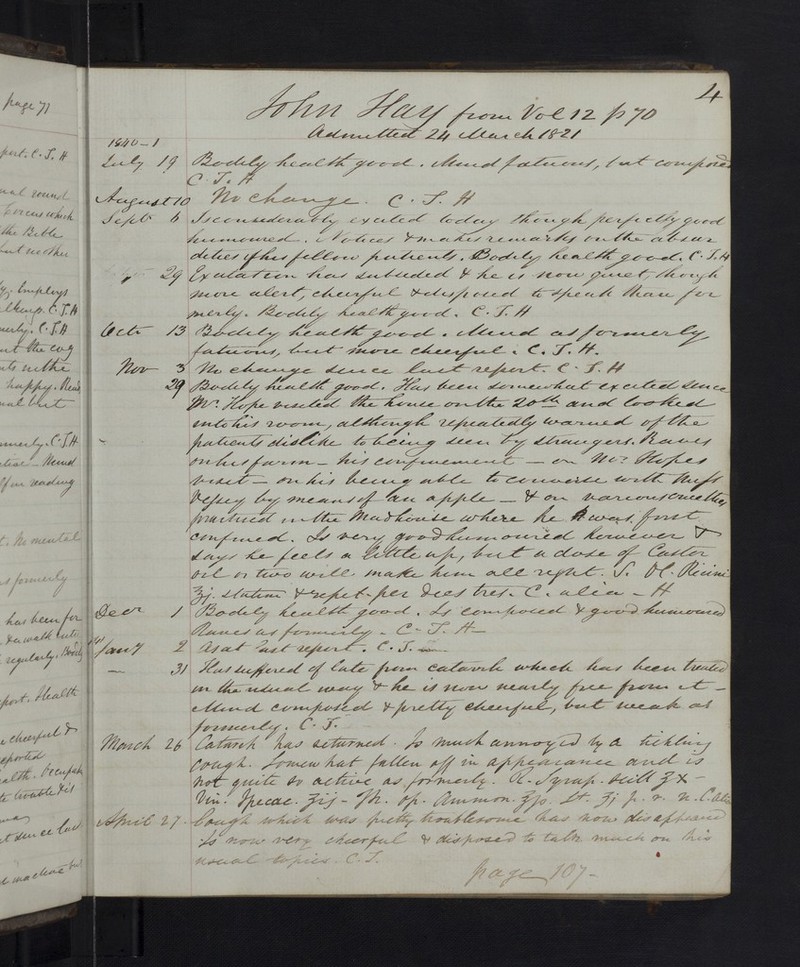 page 71
4
John Hay from Vol 12 p 70
Admitted 24 March 1821
1840-1
July 19 Bodily health good. Mind fatuous, but composed
C. T. H
August 10 No change. C. T. H
Sept 6 Is considerably excited today though perfectly good
humoured. Notices & makes remarks on the absur
dities of his fellow patients. Bodily health good. C. T. H
29 Exaltation has subsided & he is now quiet though
more alert, cheerful & disposed to speak than for
merly. Bodily health good. C. T. H
Octr 13 Bodily health good. Mind as formerly
fatuous, but more cheerful. C. T. H.
Nov 3 No change since last report. C. T. H
29 Bodily health good. Has been somewhat excited since
Mr. Hope visited the house on the 20th and looked
into his room, although repeatedly warned of the
patients dislike to being seen by strangers. Raves
on his farm - his confinement - on Mr. Hopes
visit - on his being able to converse with
by means of an apple - & on various
practised in the Madhouse where he was first
confined. Is very good humoured however &
says he feels a little up, but a dose of Castor
oil or two will make him all right. S. Ol. Ricini
℥j. statim & repet. per dies tres. C. alia - H
Decr 1 Bodily health good. Is composed & good humoured
Raves as formerly. C. T. H -
Jany 2 As at last report. C. T.
- 31 Has suffered of late from catarrh which has been treated
in the usual way & he is now nearly free from it -
Mind composed & pretty cheerful, but weak as
formerly. C. T.
March 26 Catarrh has returned. Is much annoyed by a tickling
cough. Somewhat fallen off in appearance and is
not quite so active as formerly. R. Syrup. Scill ʒx -
Vin. Ipecac. ʒij - Tr. op. Ammon. ʒjs. St. ʒj p. r. n. C. Alia
April 27. Cough which was pretty troublesome has now disappeared
Is now very cheerful & disposed to talk much on his
usual topics. C. T.
page 107 -